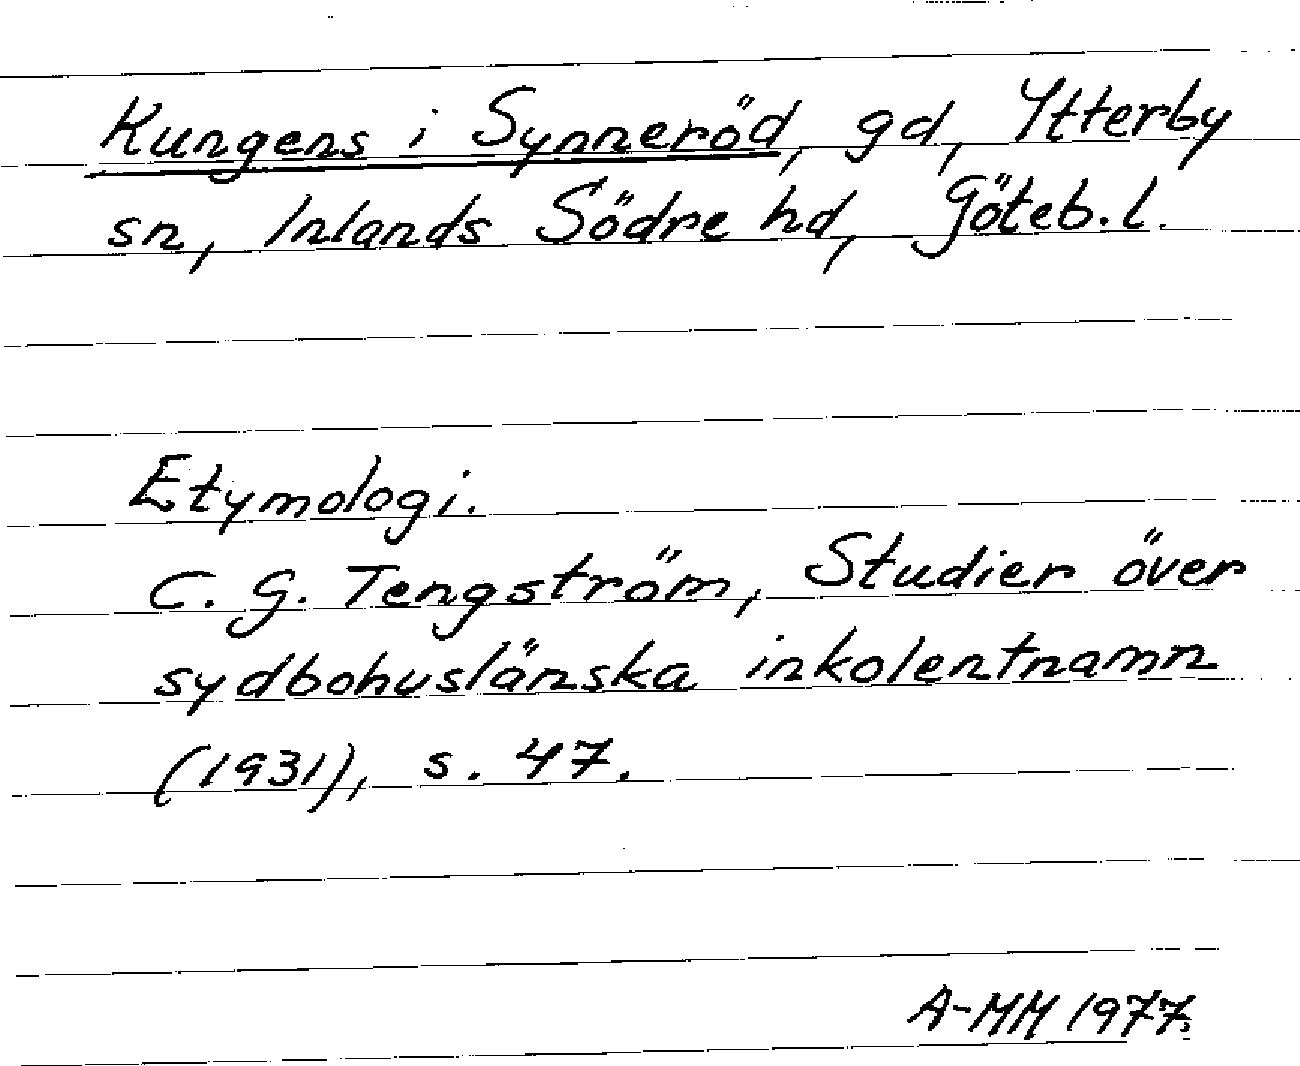 Kungens i Synneröd, gd, Ytterby
sn, Inlands Södre hd, Göteb. l.
Etymologi.
C. G. Tengström, Studier över
sydbohuslänska inkolentnamn
(1931), s. 47.
A-MM 1977.